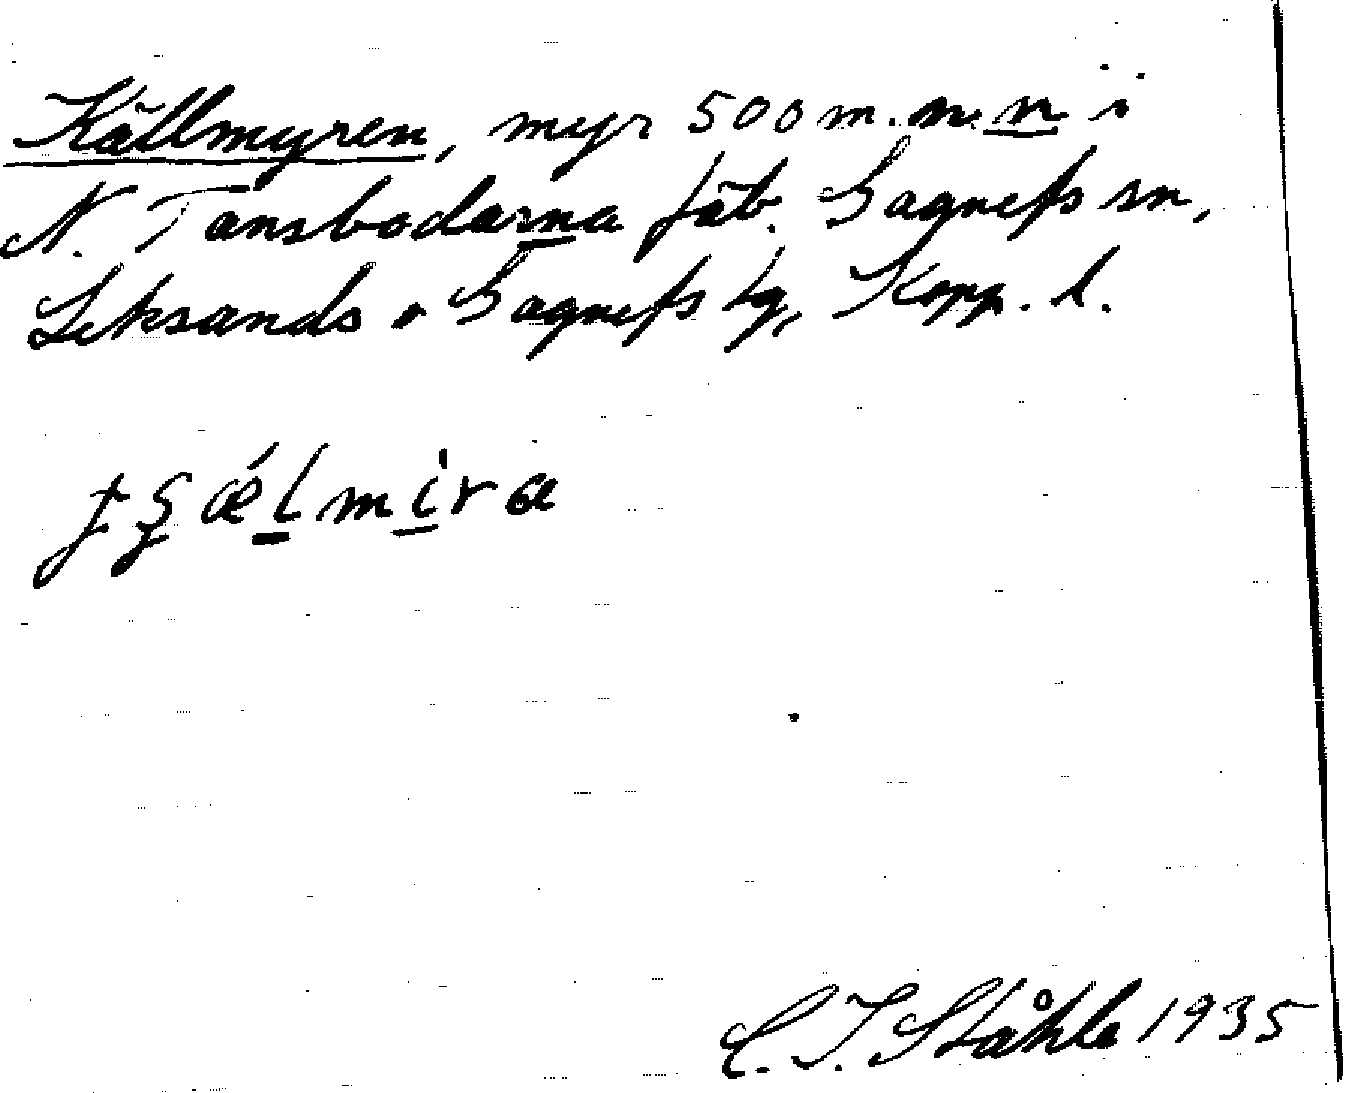 Källmyren, myr 500 m. n. n. ö
N. Tansbodarna fäb. Gagnefs sn,
Leksands o Gagnefs tg, Kopp. l.
C. I. Ståhle 1935